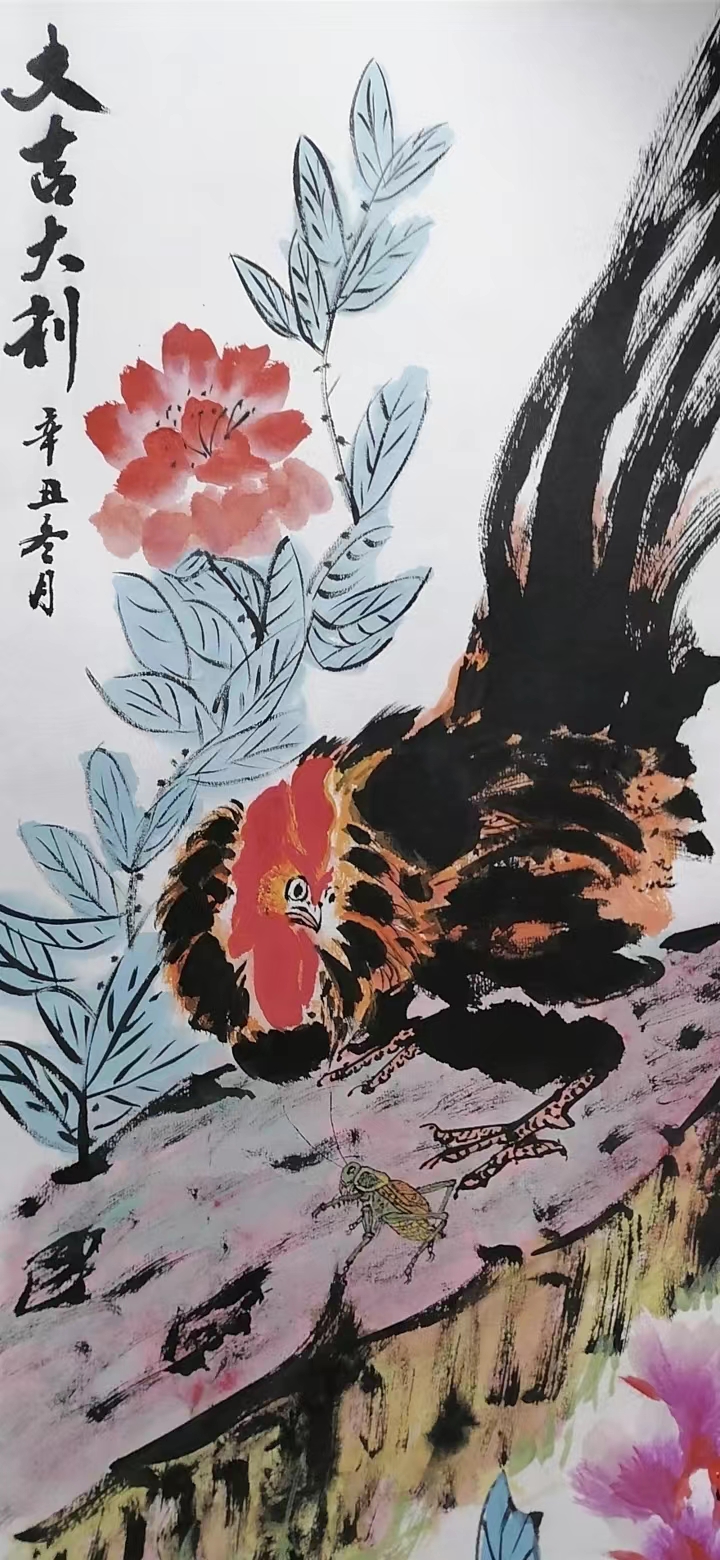 大吉大利
辛丑冬月